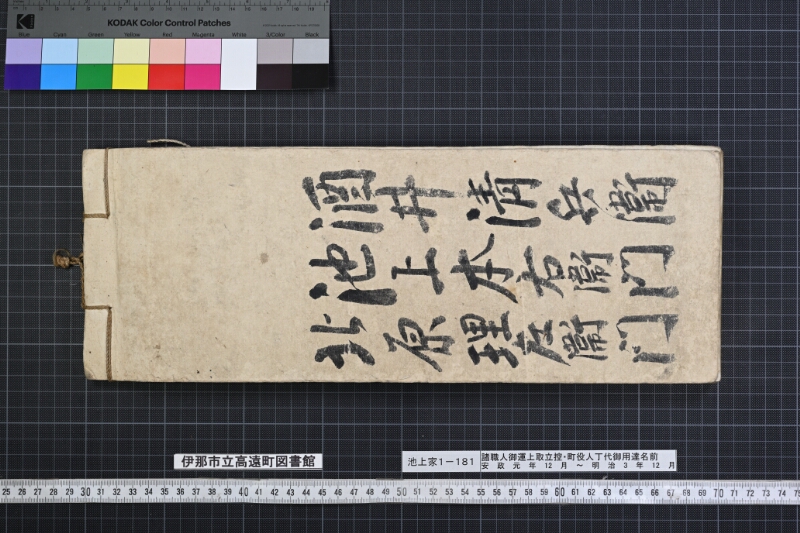 KODAK Color Control Patches
Blue Cyan Green Yellow Red Magenta White 3/Color Black
酒井清兵衛
池上本右衛門
北原理左衛門
伊那市立高遠町図書館
池上家1-181
諸職人御運上取立控・町役人丁代御用達名前
安政元年12月～明治3年12月
25 26 27 28 29 30 31 32 33 34 35 36 37 38 39 40 41 42 43 44 45 46 47 48 49 50 51 52 53 54 55 56 57 58 59 60 61 62 63 64 65 66 67 68 69 70 71 72 73 74 75